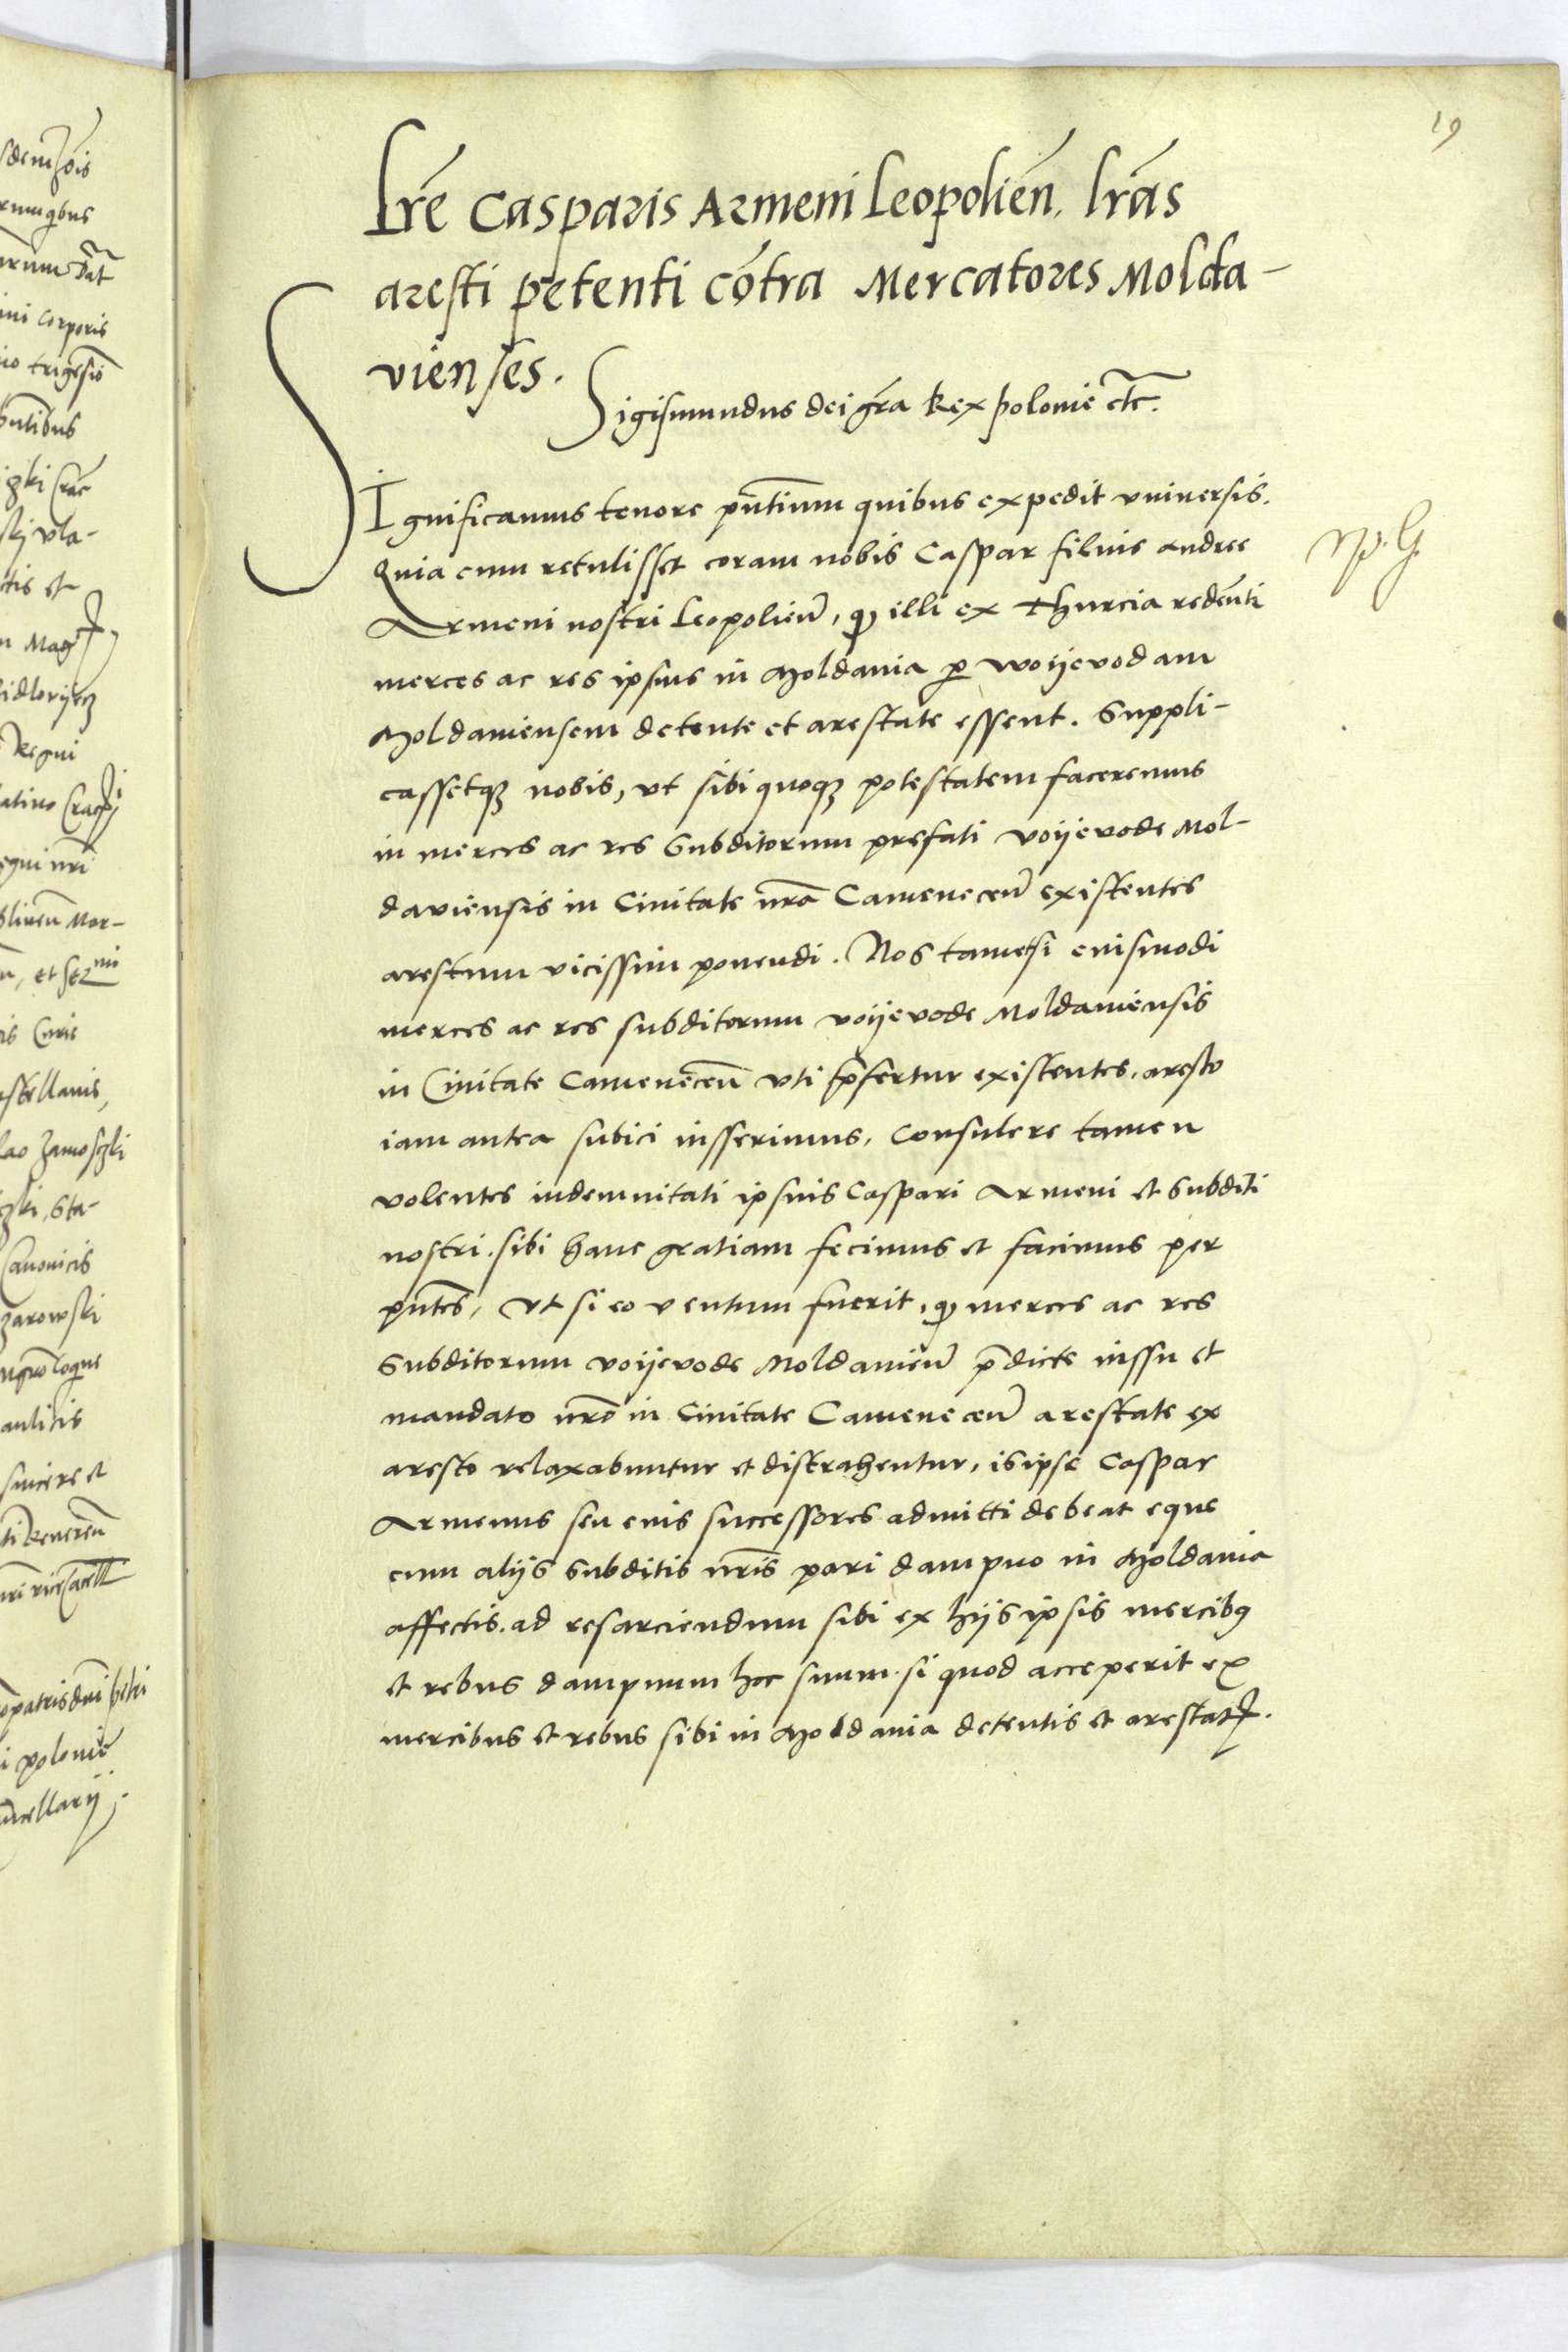 19
Lr̃e Casparis Armeni Leopolien̄. lr̃as
aresti petenti cōtra Mercatores Molda-
vienses.
Sigismundus dei gr̃a Rex polonie etc̃.
SIgnificamus tenore pn̄tium quibus expedit vniversis.
Quia cum retulisset coram nobis Caspar filius andree
Armeni nostri Leopolien̄, qͦ illi ex Thurcia redeūti
merces ac res ipsius in Moldauia p̱ woijevodam
Moldauiensem detente et arestate essent. Suppli-
cassetqꝫ nobis, vt sibi quoqꝫ potestatem faceremus
in merces ac res Subditorum prefati voijevode Mol-
daviensis in Ciuitate nr̃a Camenecen̄ existentes
arestum vicissim ponendi. Nos tametsi euismodi
merces ac res subditorum voijevode Moldauiensis
in Ciuitate Camenecen̄ vti p̄fertur existentes, aresto
iam antea subici iusserimus, Consulere tamen
volentes indemnitati ipsius Caspari Armeni et Subditi
nostri. sibi hanc gratiam fecimus et facimus per
pn̄tes, Vt si eo ventum fuerit, qͦ merces ac res
Subditorum voijevode Moldauien̄ p̄dicte iussu et
mandato nr̃o in Ciuitate Camenecen̄ arestate ex
aresto relaxabuntur et distrahentur, is ipse Caspar
Armenus seu euis successores admitti debeat eque
cum alijs Subditis nr̃is pari dampno in Moldauia
affectis. ad resarciendum sibi ex hijs ipsis mercibꝰ
et rebus dampnum hoc suum. si quod acceperit ex
mercibus et rebus sibi in Moldauia detentis et arestatꝭ.